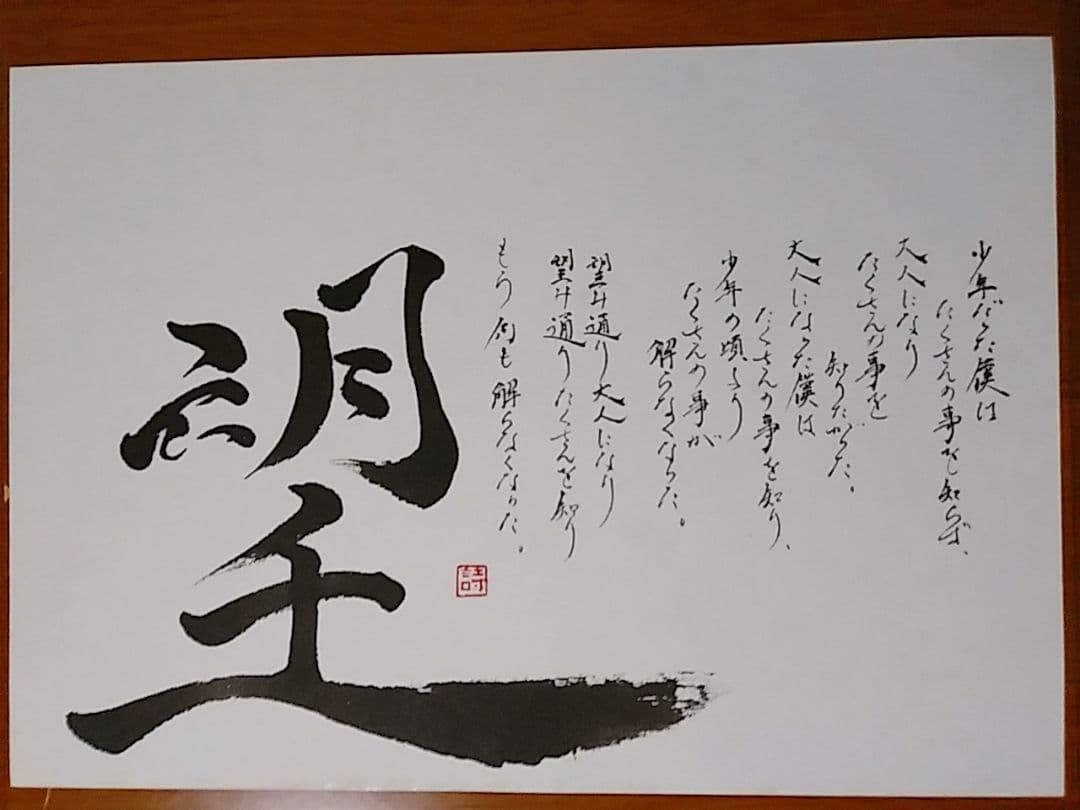 少年だった僕は
たくさんの事を知らず、
大人になり
たくさんの事を
知りたがった。
大人になった僕は
たくさんの事を知り、
少年の頃より
たくさんの事が
解らなくなった。
望み通り大人になり
望み通りたくさんを知り
もう何も解らなくなった。
望
詩